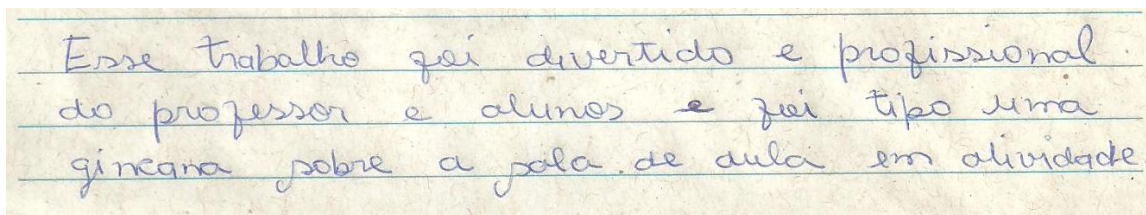 Esse trabalho foi divertido e profissional
do professor e alunos e foi tipo uma
gincana sobre a sala de aula em atividade